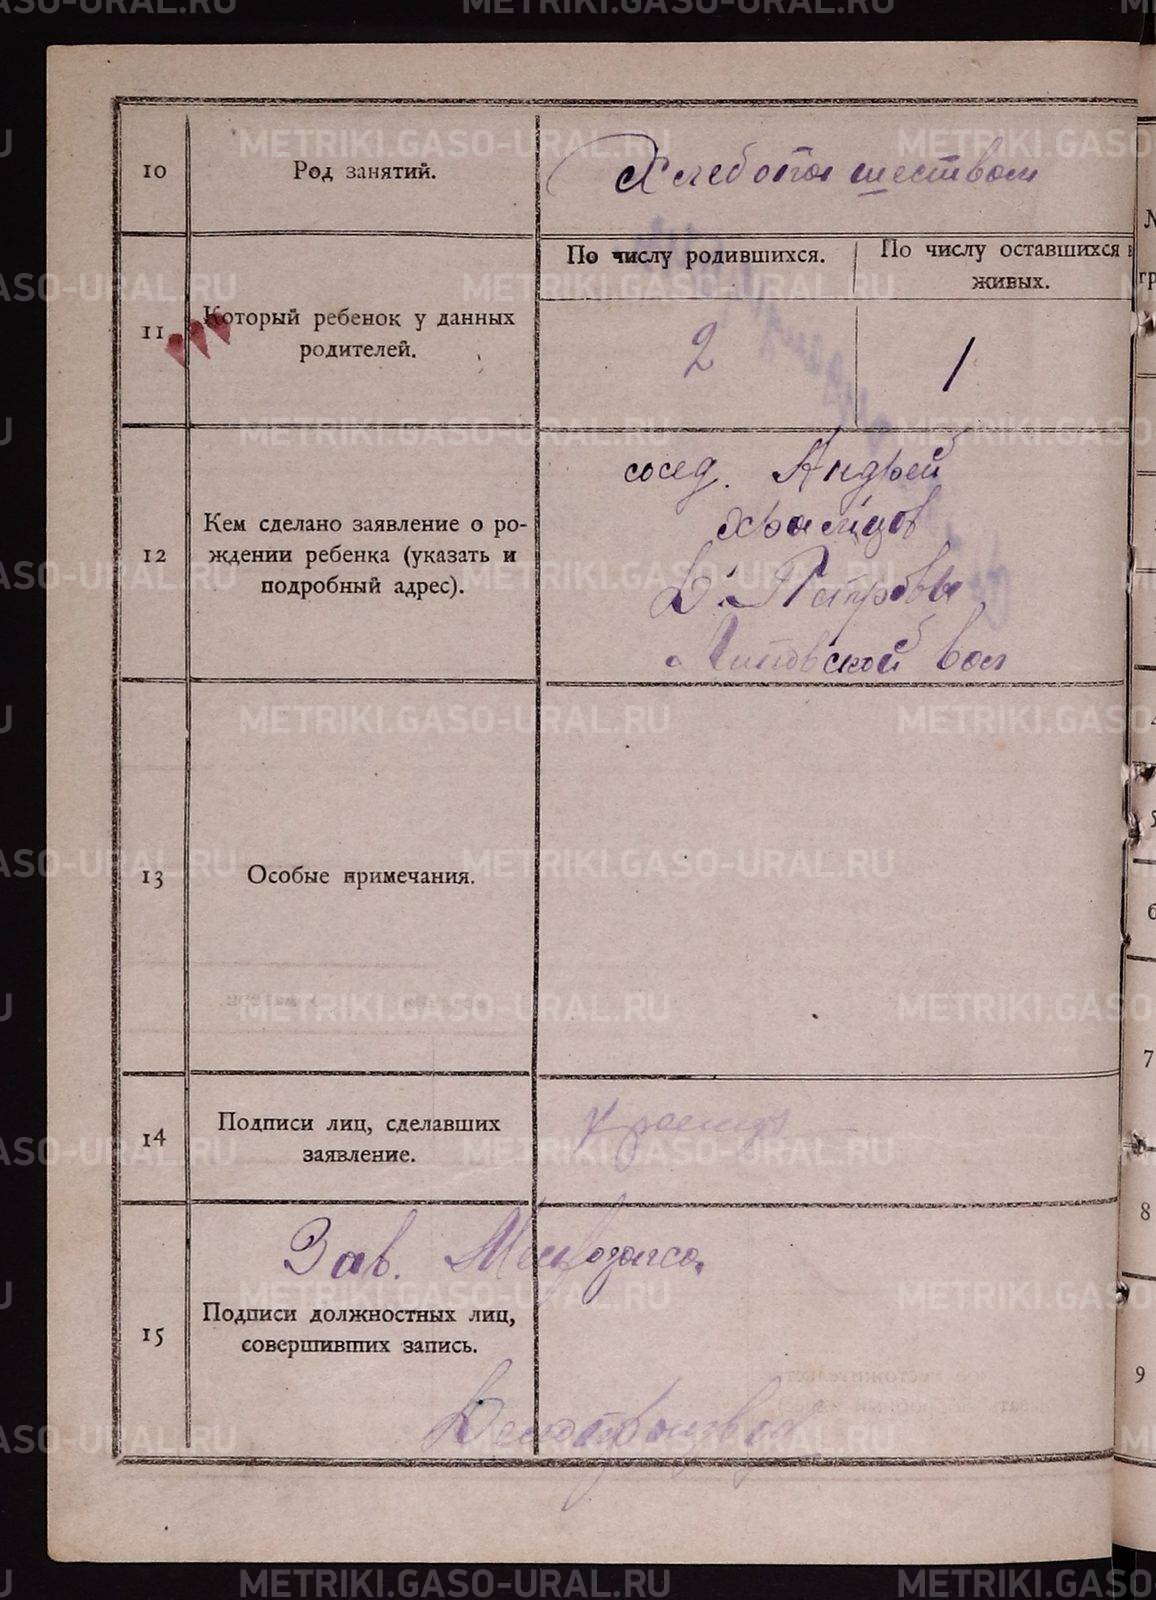 10
Род занятий.
Хлебопашеством
11
Который ребенок у данных
родителей.
По числу родившихся.
По числу оставшихся в
живых.
2
1
12
Кем сделано заявление о ро-
ждении ребенка (указать и
подробный адрес).
сосед. Андрей
Храмцов
Д. Петровы
Липовской вол
13
Особые примечания.
14
Подписи лиц, сделавших
заявление.
15
Зав.
Подписи должностных лиц,
совершивших запись.
Делопроизвод
METRIKI.GASO-URAL.RU